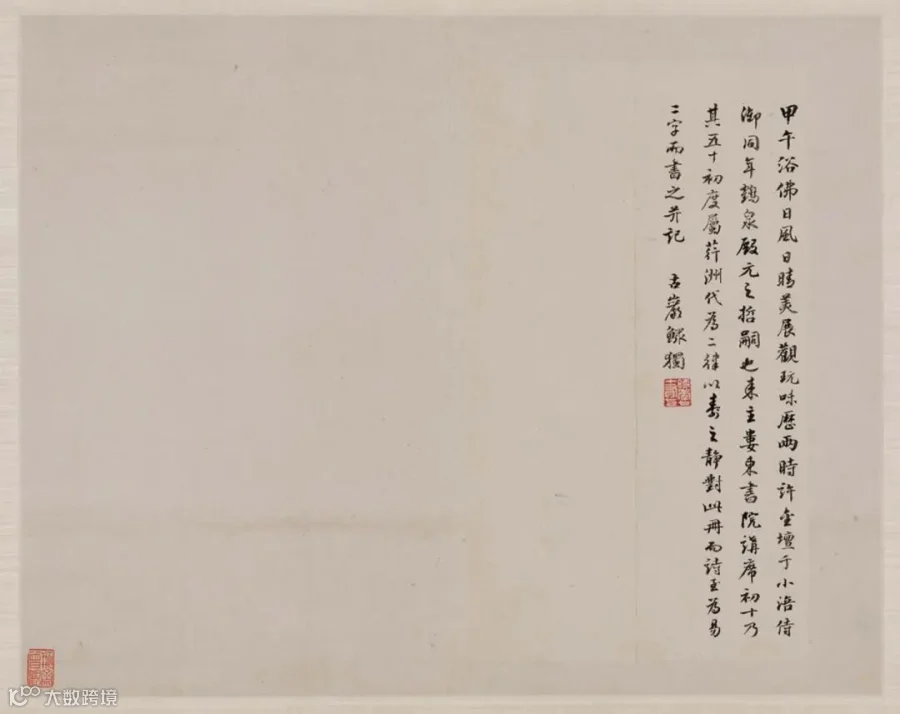 甲午浴佛日風日晴美展觀玩味歷兩時許金壇于小浯侍
御同年鶴泉殿元之哲嗣也來主婁東書院講席初十乃
其五十初度屬莘洲代為二律以壽之靜對此冊而詩至為易
二字而書之并記 古巖鰥獨
大数跨境